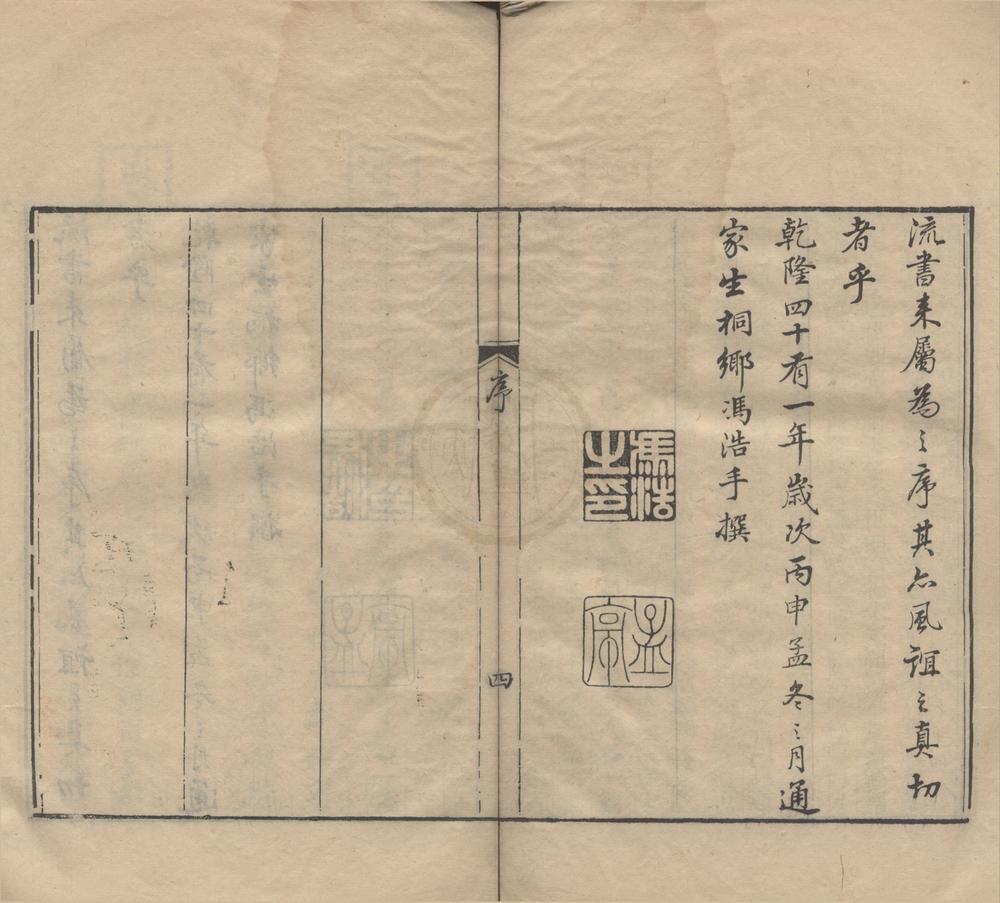 流書来屬為之序其亦風誼之真切
者乎
乾隆四十有一年歲次丙申孟冬之月通
家生桐鄉馮浩手撰
馮浩之印
孟亭
序
四